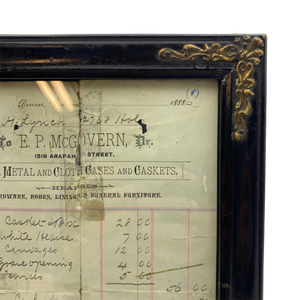 188
Lynch 2758 Hol
To E. P. McGOVERN, Dr.
1519 ARAPAH STREET.
METAL AND CLOTH CASES AND CASKETS,
HEARSES
RDWARE, ROBES, LINING & FUNERAL FURNITURE.
Casket & Box 28 00
White Hearse 7 00
Carriages 12 00
Grave opening 4 00
Services 5 00
56 00